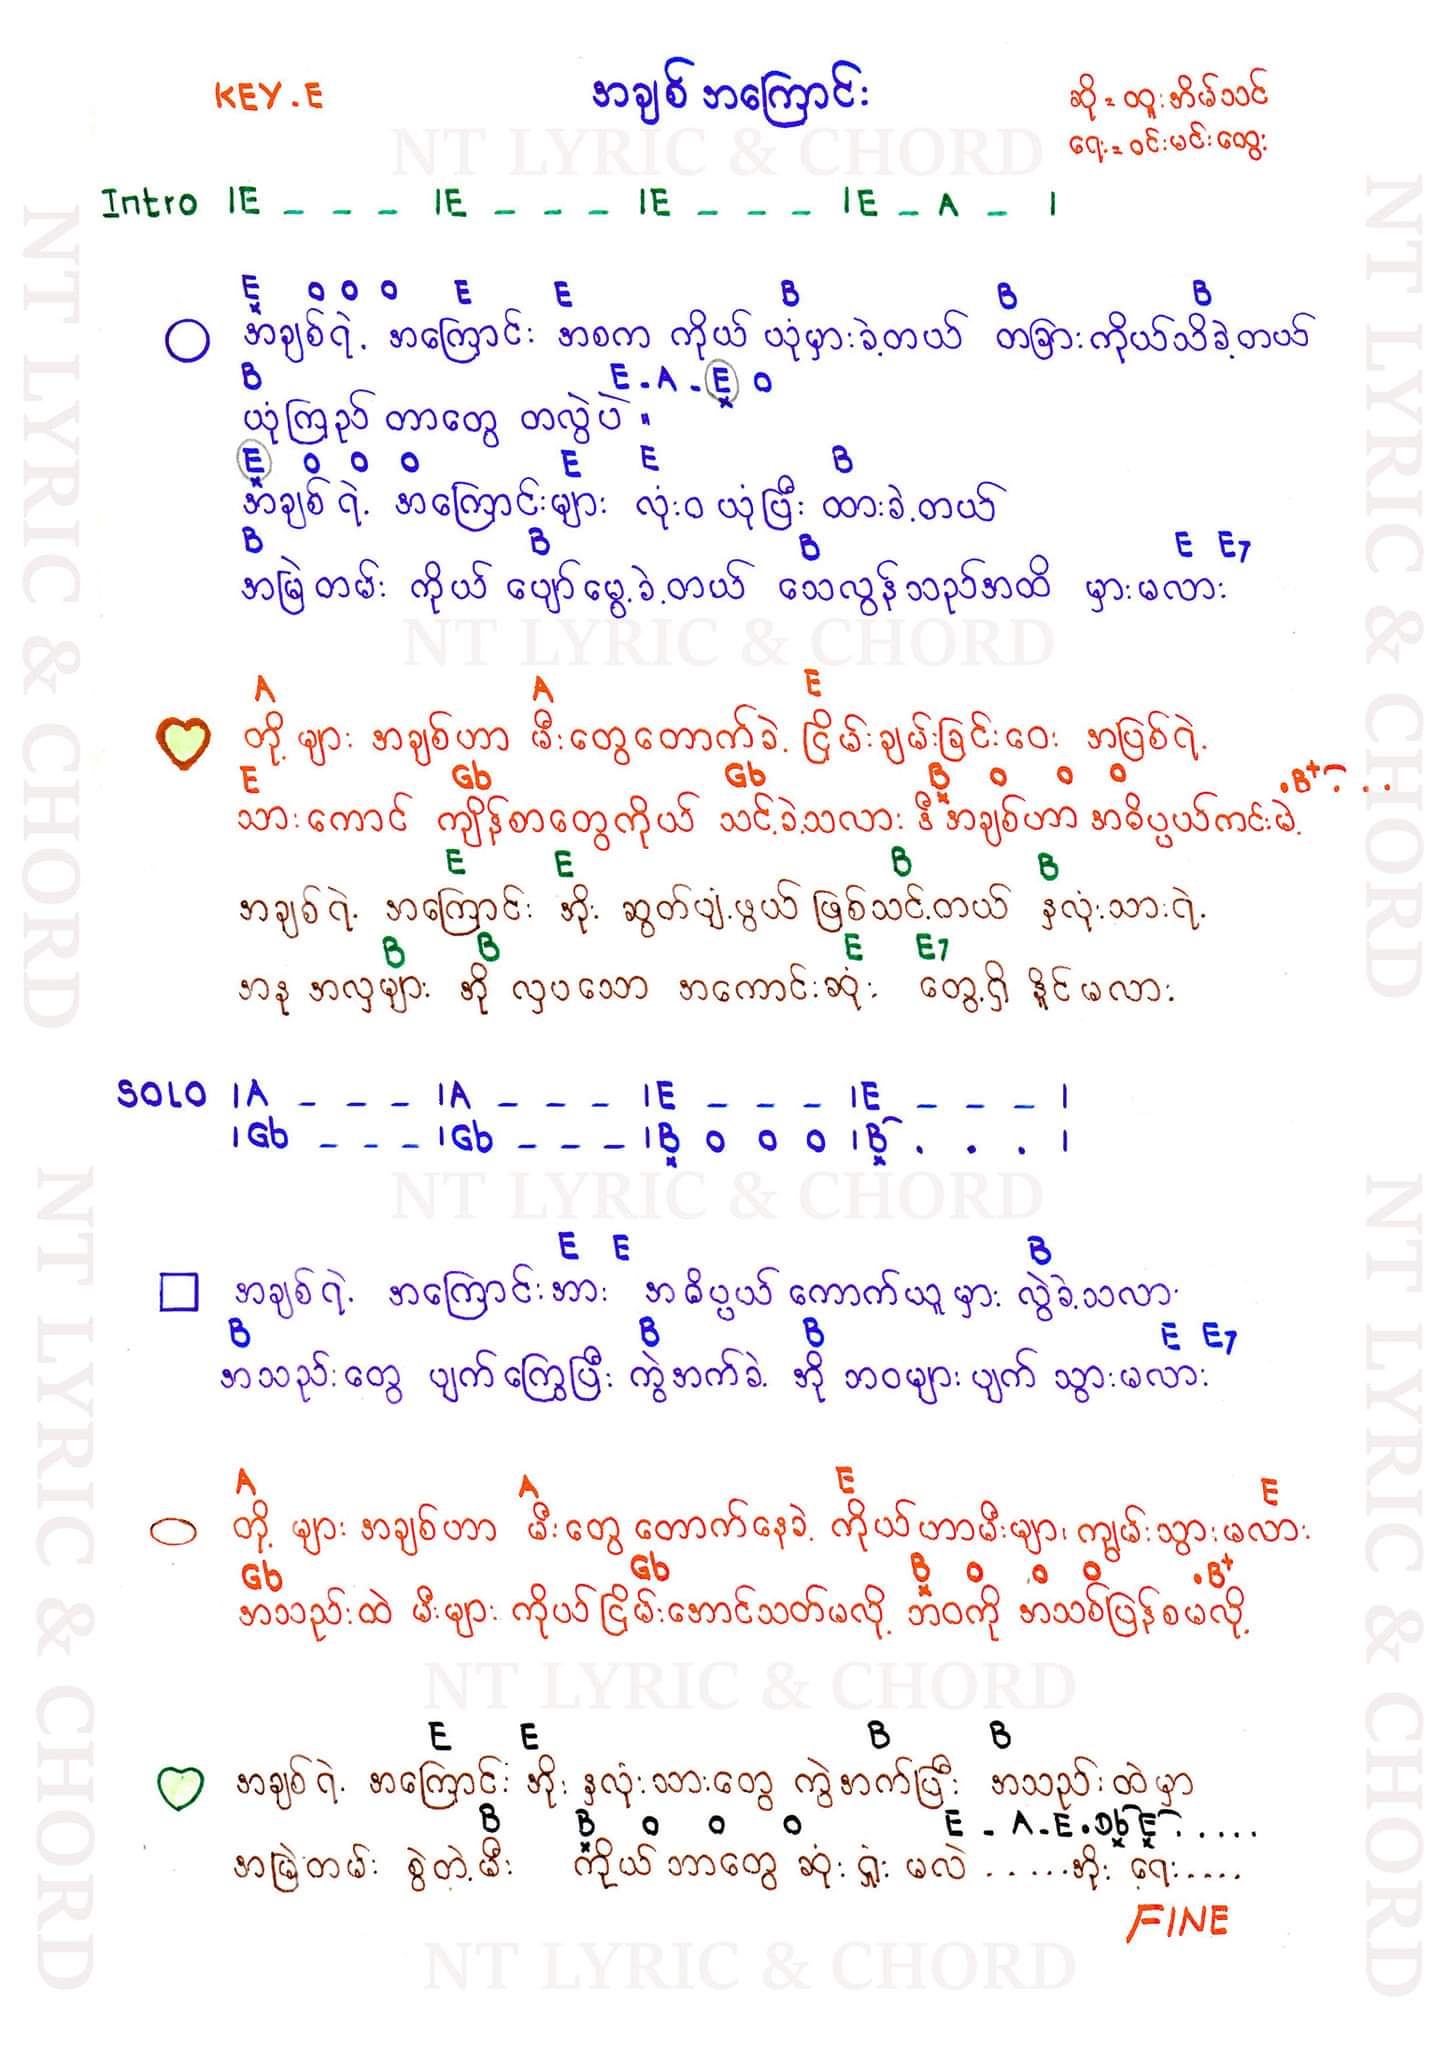 KEY.E
အချစ်အကြောင်း
ဆို = ထူးအိမ်သင်
ရေး = ဝင်းမင်းထွေး
NT LYRIC & CHORD
Intro |E _ _ _ |E _ _ _ |E _ _ _ |E _ A _ |
E o o o E E B B B
အချစ်ရဲ့ အကြောင်း အစက ကိုယ် ယုံမှားခဲ့တယ် တခြားကိုယ်သိခဲ့တယ်
B E - A - E o
ယုံကြည် တာတွေ တလွဲပဲ "
E o o o E E B
အချစ်ရဲ့ အကြောင်းများ လုံးဝ ယုံပြီး ထားခဲ့တယ်
B B B E E7
အမြဲတမ်း ကိုယ် ပျော်မွေ့ခဲ့တယ် သေလွန်သည်အထိ မှားမလား
NT LYRIC & CHORD
A A E
တို့များ အချစ်ဟာ မီးတွေတောက်ခဲ့ ငြိမ်းချမ်းခြင်းဝေး အဖြစ်ရဲ့
E Gb Gb B o o o . B+ . . .
သားကောင် ကျိန်စာတွေကိုယ် သင့်ခဲ့သလား ဒီအချစ်ဟာ အဓိပ္ပယ်ကင်းမဲ့
E E B B
အချစ်ရဲ့ အကြောင်း အိုး ဆွတ်ပျံ့ဖွယ် ဖြစ်သင့်တယ် နှလုံးသားရဲ့
B B E E7
အနု အလှများ အို လှပသော အကောင်းဆုံး တွေ့ရှိ နိူင်မလား
SOLO |A _ _ _ |A _ _ _ |E _ _ _ |E _ _ _ |
|Gb _ _ _ |Gb _ _ _ |B o o o |B . . . |
NT LYRIC & CHORD
E E B
အချစ်ရဲ့ အကြောင်းအား အဓိပ္ပယ် ကောက်ယူမှား လွဲခဲ့သလား
B B B E E7
အသည်းတွေ ပျက်ကြွေပြီး ကွဲအက်ခဲ့ အို ဘဝများပျက် သွားမလား
A A E E
တို့ များ အချစ်ဟာ မီးတွေ တောက်နေခဲ့ ကိုယ်ဟာမီးများ ကျွမ်းသွားမလား
Gb Gb B o o o . B+
အသည်းထဲ မီးများ ကိုယ်ငြိမ်းအောင်သတ်မလို့ ဘဝကို အသစ်ပြန်စမလို့
NT LYRIC & CHORD
E E B B
အချစ်ရဲ့ အကြောင်း အိုး နှလုံးသားတွေ ကွဲအက်ပြီး အသည်းထဲမှာ
B B o o o E - A - E . Db E . . . . .
အမြဲတမ်း စွဲတဲ့မီး ကိုယ်ဘာတွေ ဆုံးရှုံး မလဲ ......အိုး ရေး....
FINE
NT LYRIC & CHORD
NT LYRIC & CHORD
NT LYRIC & CHORD
NT LYRIC & CHORD
NT LYRIC & CHORD